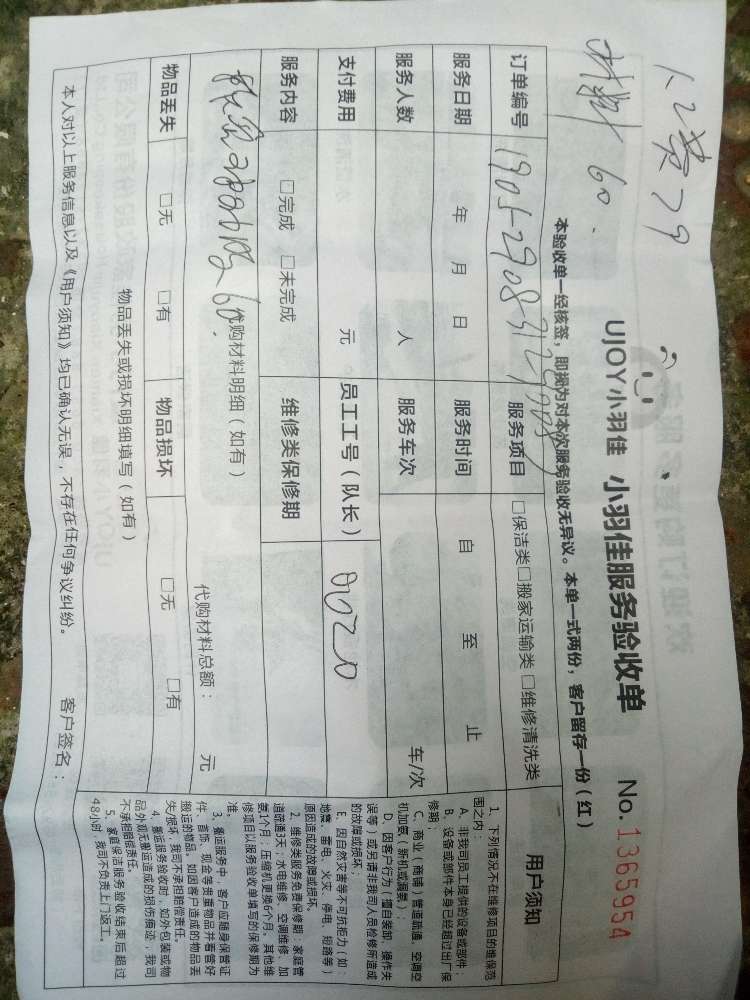 人工费79
材料60.
UJOY小羽佳 小羽佳服务验收单 No.1365954
本验收单一经核签，即视为对本次服务验收无异议。本单一式两份，客户留存一份（红）
订单编号
服务项目 □保洁类□搬家运输类□维修清洗类
服务日期 年 月 日 服务时间 自 至 止
服务人数 人 服务车次 车/次
支付费用 元 员工工号（队长）
服务内容 □完成 □未完成 维修类保修期
60. 代购材料明细（如有）
代购材料总额： 元
物品丢失 □无 □有 物品损坏 □无 □有
物品丢失或损坏明细填写（如有）
本人对以上服务信息以及《用户须知》均已确认无误，不存在任何争议纠纷。 客户签名：
用户须知
1、下列情况不在维修项目的维保范
围之内：
A、非我司员工提供的设备或部件；
B、设备或部件本身已经超过出厂保
修期；
C、商业（商铺）管道疏通，空调空
机加氨（新机或漏氨）；
D、因客户行为（擅自装卸、操作失
误等）或另请非我司人员检修所造成
的故障或损坏；
E、因自然灾害等不可抗拒力（如：
地震、雷电、火灾、停电、短路等）
原因造成的故障或损坏。
2、维修类服务免费保修期：家庭管
道疏通3天，水电维修、空调维修、加
氨1个月；压缩机更换6个月，其他维
修项目以服务验收单填写的保修期为
准。
3、搬运服务中，客户应随身保管证
件、首饰、现金等贵重物品并看管好
搬运的物品。如因客户造成的物品丢
失/损坏，我司不承担赔偿责任。
4、搬运服务验收时，如外包装或物
品外观无搬运造成的损伤痕迹，我司
不承担赔偿责任。
5、家庭保洁服务验收结束后超过
48小时，我司不负责上门返工。